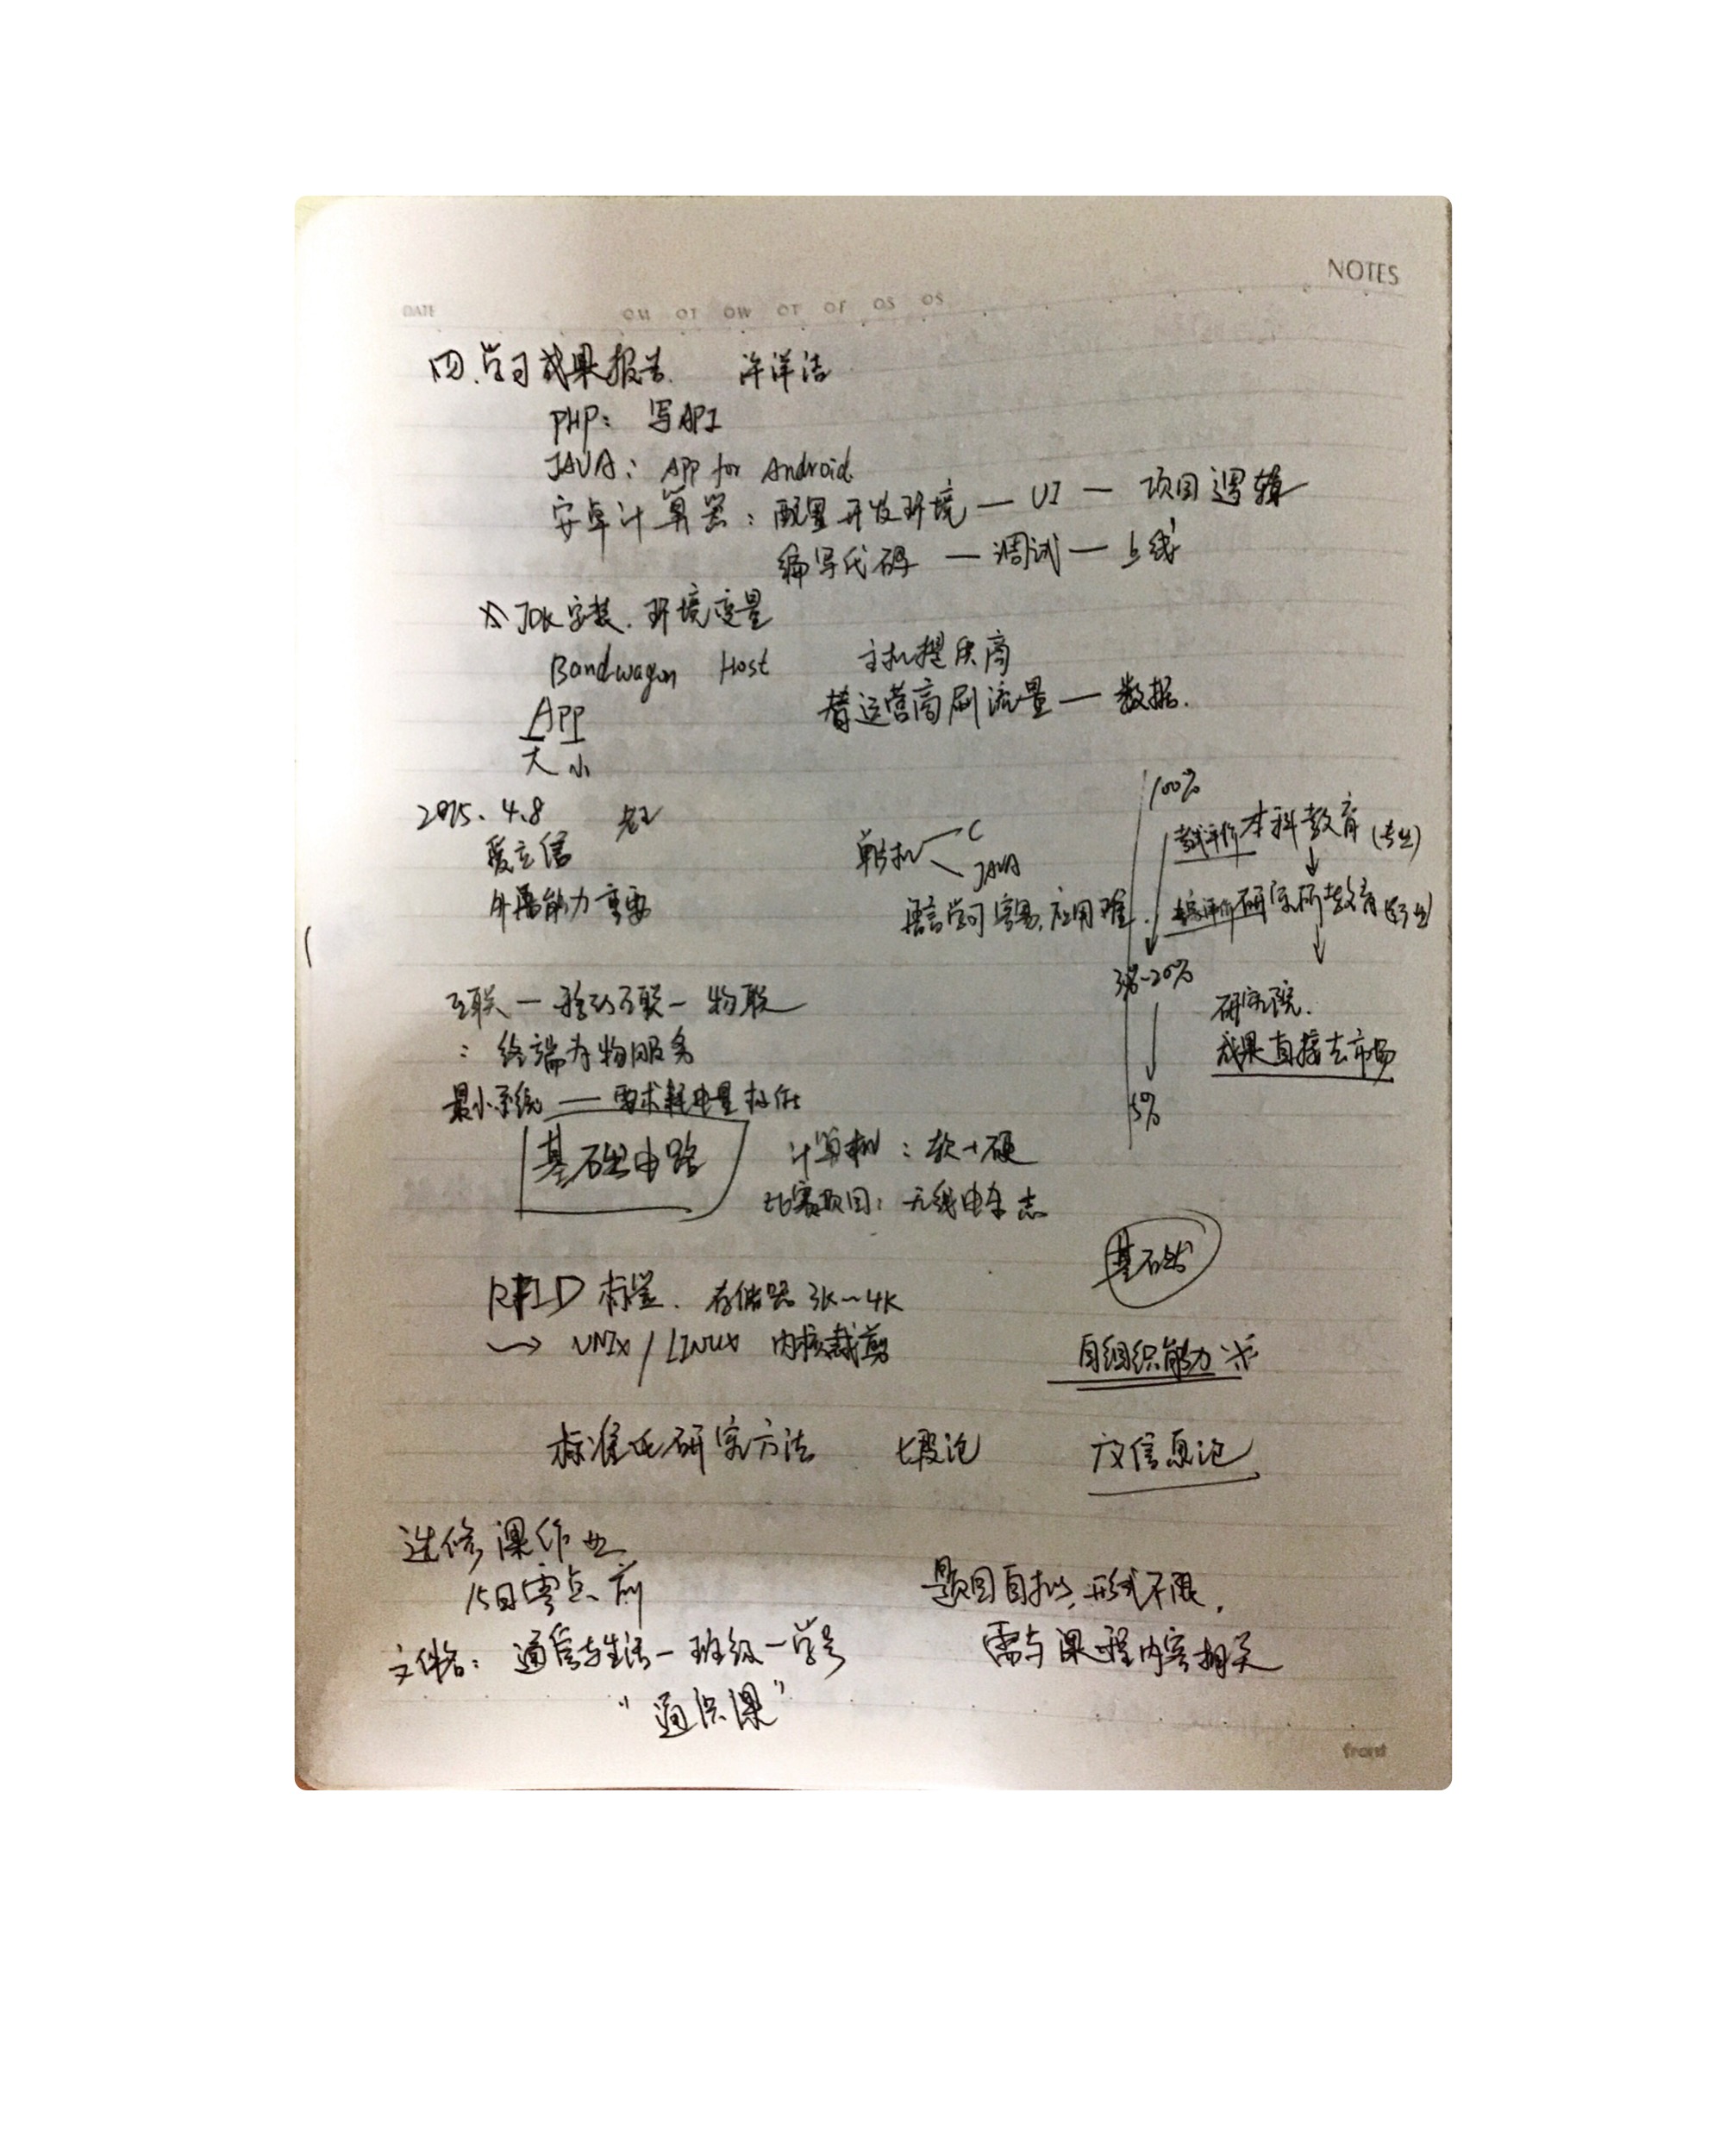 NOTES
DATE
OM OT OW OT OF OS OS
四、学习成果报告 许洋洁
PHP: 写API
JAVA: APP for Android
安卓计算器: 配置开发环境 — UI — 项目逻辑
编写代码 — 调试 — 上线
JDK安装. 环境变量
Bandwagon Host 主机提供商
替运营商刷流量 — 数据.
APP
大 小
2015. 4.8
爱立信
外语能力重要
单片机 C
JAVA
语言学习容易, 应用难.
100%
考试评价 本科教育 (专业)
评价 研究所教育
3%~20%
研究院.
成果直接去市场
5%
互联 — 移动互联 — 物联
: 终端为物服务
最小系统 — 要求耗电量极低
基础电路
计算机: 软+硬
比赛项目: 无线电车
基础
RFID 标签. 存储器 3K~4K
→ UNIX / LINUX 内核裁剪
自组织能力
标准化研究方法 七段论 广义信息论
选修课作业
15日零点前
文件名: 通信与生活—班级—学号
"通识课"
题目自拟, 形式不限,
需与课程内容相关
front